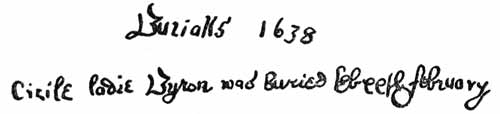 Burialls 1638
Cicile ladie Byron was Buried february